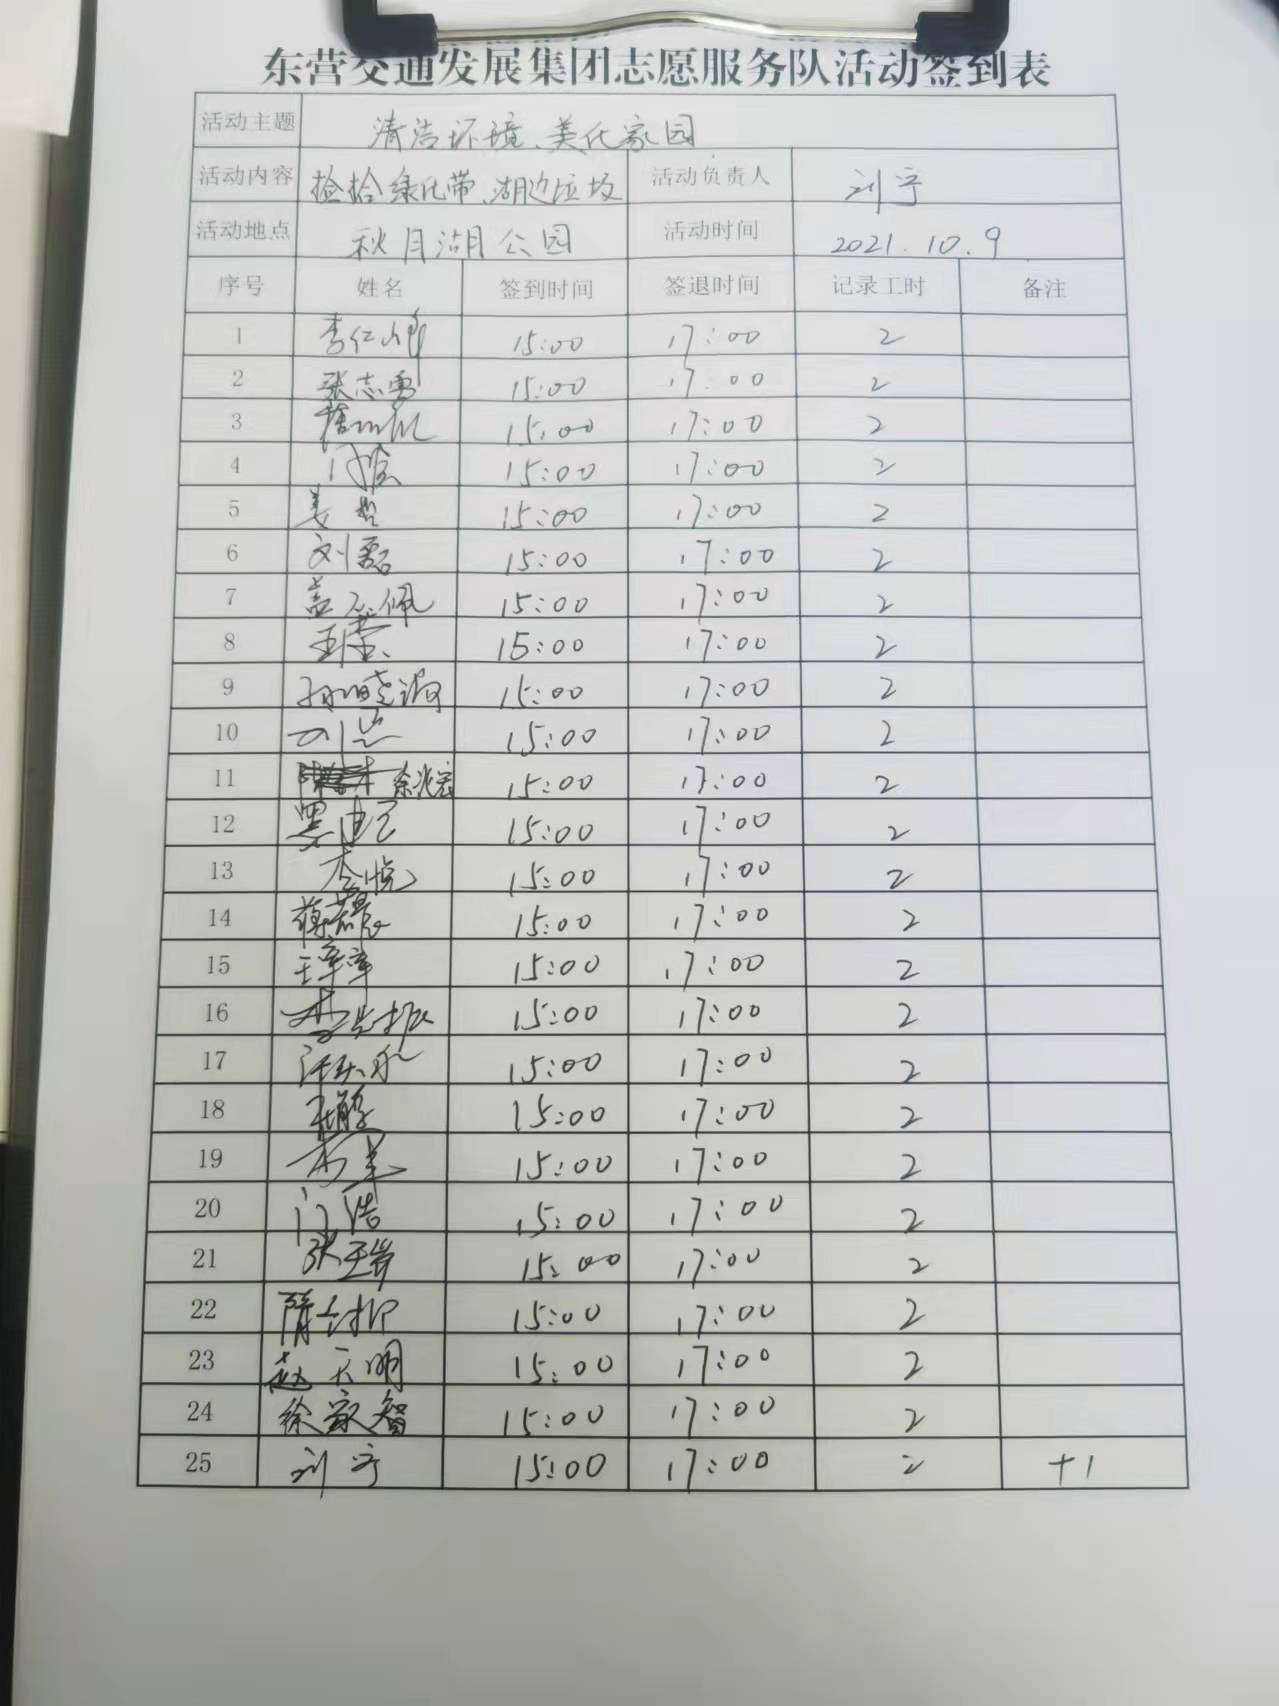 东营交通发展集团志愿服务队活动签到表
活动主题 清洁环境、美化家园
活动内容 捡拾绿化带、湖边垃圾 活动负责人 刘宁
活动地点 秋月湖公园 活动时间 2021.10.9
序号 姓名 签到时间 签退时间 记录工时 备注
1 15:00 17:00 2
2 张志勇 15:00 17:00 2
3 15:00 17:00 2
4 15:00 17:00 2
5 姜 15:00 17:00 2
6 刘磊 15:00 17:00 2
7 15:00 17:00 2
8 15:00 17:00 2
9 孙晓 15:00 17:00 2
10 15:00 17:00 2
11 15:00 17:00 2
12 15:00 17:00 2
13 李悦 15:00 17:00 2
14 15:00 17:00 2
15 15:00 17:00 2
16 李 15:00 17:00 2
17 15:00 17:00 2
18 15:00 17:00 2
19 15:00 17:00 2
20 门浩 15:00 17:00 2
21 张 15:00 17:00 2
22 隋 15:00 17:00 2
23 赵天明 15:00 17:00 2
24 徐 智 15:00 17:00 2
25 刘宁 15:00 17:00 2 +1